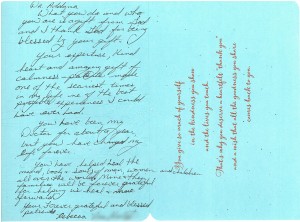 What you do and who
you are is a gift from God
and I thank God for being
blessed by your gift.
Your expertise, kind
heart and amazing gift of
calmness
one of the scariest times
in my life one of the best
possible experiences I could
have ever had.
You have been my
Doctor for about a year
but you have changed my
life forever.
You have helped heal the
mind, body & soul of men, women and children
all over the world. Many
families will be forever grateful
for helping us heal & move
forward.
Your forever grateful and blessed
patient,
Rebecca
You give so much of yourself
in the kindness you show
and the lives you touch
That's why you deserve a heartfelt "thank you"
and a wish that all the goodness you share
comes back to you.